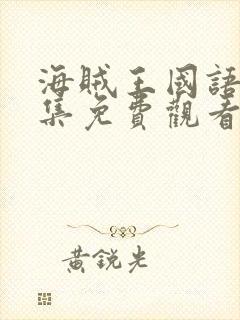 海賊王國語
集免費觀看
黃銳光